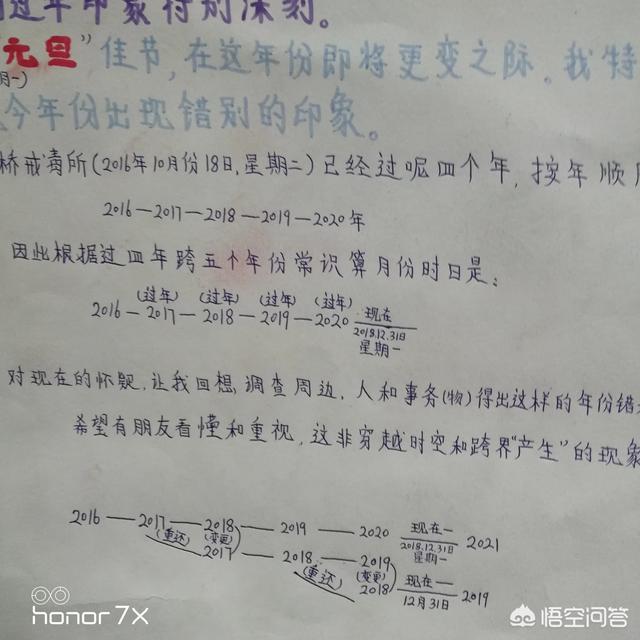 过年印象特别深刻。
元旦”佳节,在这年份即将更变之际。我特
月一)
今年份出现错别的印象。
桥戒毒所(2016年10月份18日,星期二)已经过呢四个年,按年顺
2016—2017—2018—2019—2020年
因此根据过四年跨五个年份常识算月份时日是:
(过年) (过年) (过年) (过年)
2016—2017—2018—2019—2020 现在
2018.12.31日
星期一
对现在的怀疑,让我回想,调查周边,人和事务(物)得出这样的年份错
希望有朋友看懂和重视,这非穿越时空和跨界“产生”的现象
2016—2017—2018—2019—2020 现在一 2021
2018.12.31日
星期一
(重达) (变更)
2017—2018—2019
(重达) (变更)
2018 现在一 2019
12月31日
honor 7X
悟空问答